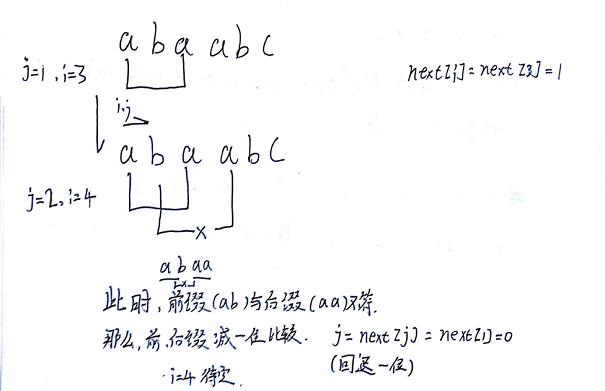 a b a a b c
j=1, i=3
next[i]=next[3]=1
i,j
a b a a b c
j=2, i=4
x
a b a a
x
此时,前缀(ab)与后缀(aa)不等.
那么,前,后缀减一位比较. j=next[j]=next[1]=0
(回退一位)
i=4 待定.